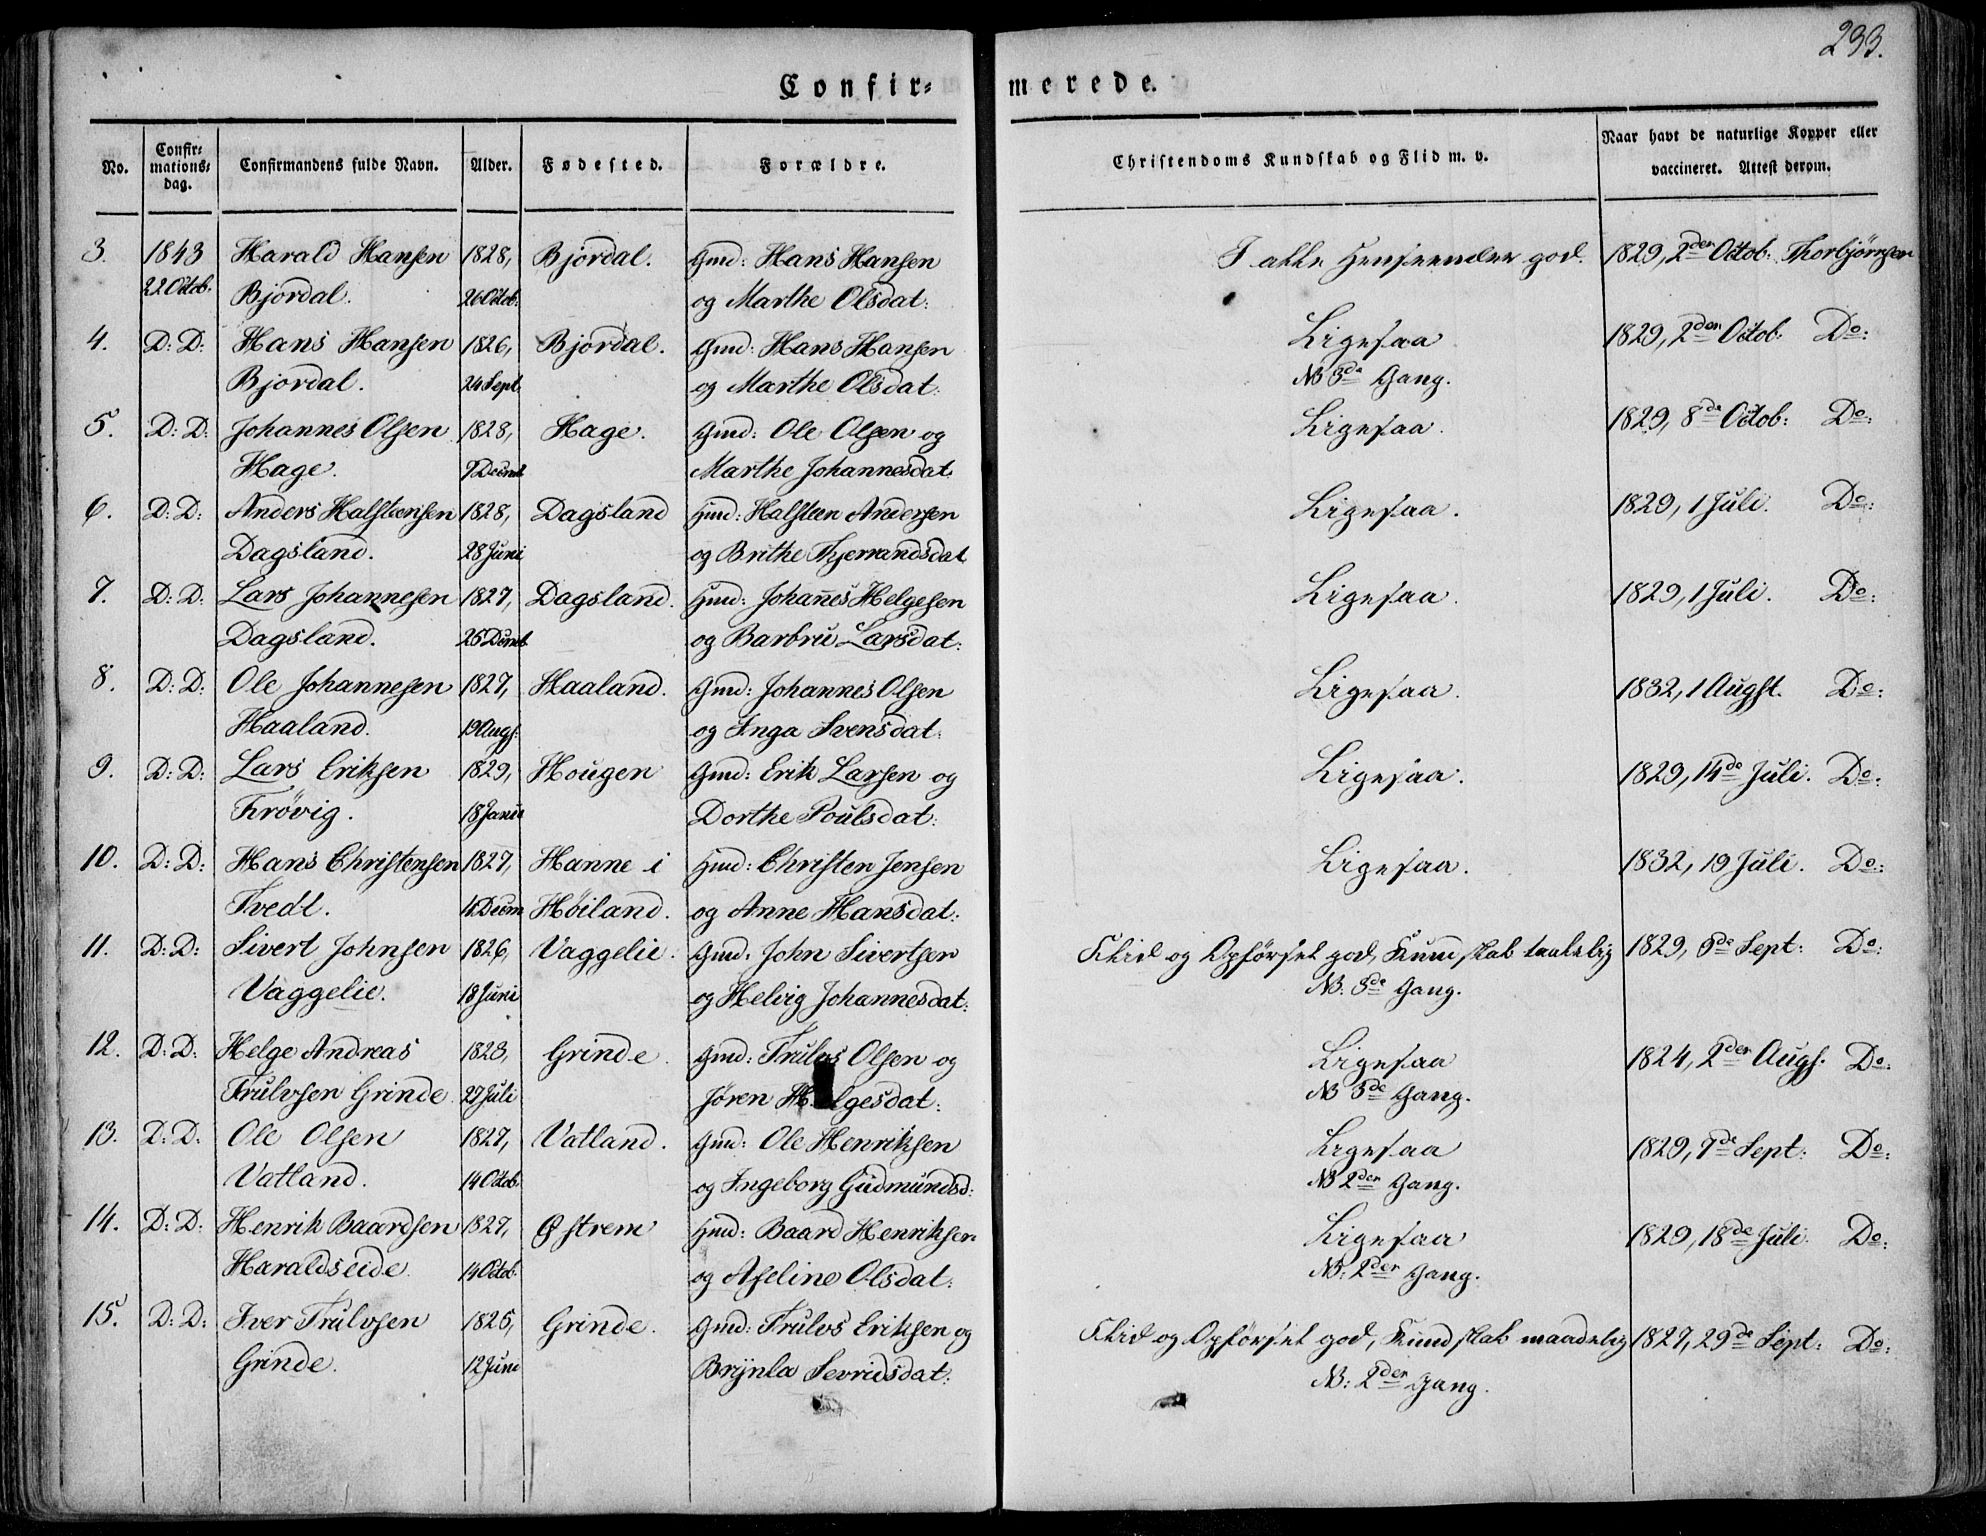 233.
Confir=
merede.
No.
Confir=
mations=
dag.
Confirmandens fulde Navn.
Alder.
Fødested.
Forældre.
Christendoms Kundskab og Flid m. v.
Naar havt de naturlige Kopper eller
vaccineret. Attest derom.
3. 1843 Harald Hansen 1828, Bjordal. Gmd: Hans Hansen I alle Henseender god. 1829, 2den Octob: Thorbjørnsen
22 Octob. Bjordal. 26 Octob: og Marthe Olsdat:
4. D: D: Hans Hansen 1826, Bjordal. Gmd: Hans Hansen Ligesaa 1829, 2den Octob: Do:
Bjordal. 24 Sept og Marthe Olsdat: NB 3de Gang.
5. D: D: Johannes Olsen 1828, Hage. Gmd: Ole Olsen og Ligesaa. 1829, 8de Octob: Do:
Hage. Marthe Johannesdat:
6. D: D: Anders Halstensen 1828, Dagsland Hmd: Halsten Andersen Ligesaa. 1829, 1 Juli. Do:
Dagsland. 28 Juni og Brithe Tjerrandsdat
7. D: D: Lars Johannesen 1827, Dagsland. Hmd: Johan̄es Helgesen Ligesaa. 1829, 1 Juli. Do:
Dagsland. 25 Decmb og Barbru Larsdat:
8. D: D: Ole Johannesen 1827, Haaland. Gmd: Johannes Olsen Ligesaa. 1832, 1 Augst. Do:
Haaland. 19 Augs: og Inga Svensdat:
9. D: D: Lars Eriksen 1829, Hougen Gmd: Erik Larsen og Ligesaa. 1829, 14de Juli. Do:
Frøvig. 18 Janu Dorthe Poulsdat:
10. D: D: Hans Christensen 1827, Hanne i Hmd: Christen Jensen Ligesaa. 1832, 19 Juli. Do:
Tvedt. Høiland. og Anne Hansdat:
11. D: D: Sivert Johnsen 1826, Vaggelie. Gmd: John Sivertsen Flid og Opførsel god, Kundskab taalelig 1829, 6de Sept: Do:
Vaggelie. 18 Juni og Helvig Johannesdat: NB: 3de Gang.
12. D: D: Helge Andreas 1823, Grinde. Gmd: Trulvs Olsen og Ligesaa 1824, 2den Augs. Do:
Trulvsen Grinde. 27 Juli Jøren Helgesdat: NB 3de Gang.
13. D: D: Ole Olsen 1827, Vatland. Gmd: Ole Henriksen Ligesaa 1829, 7de Sept: Do:
Vatland. 14 Octob: og Ingeborg Gudmundsd: NB 2den Gang.
14. D: D: Henrik Baardsen 1827, Østrem Hmd: Baard Henriksen Ligesaa 1829, 18de Juli. Do:
Haraldseide. 14 Octob: og Aseline Olsdat: NB: 2den Gang.
15. D: D: Iver Trulvsen 1825, Grinde. Gmd: Trulvs Eriksen og Flid og Opførsel god, Kundskab maadelig 1827, 29de Sept: Do:
Grinde. 12 Juni Brynla Sevridsdat: NB: 2den Gang.